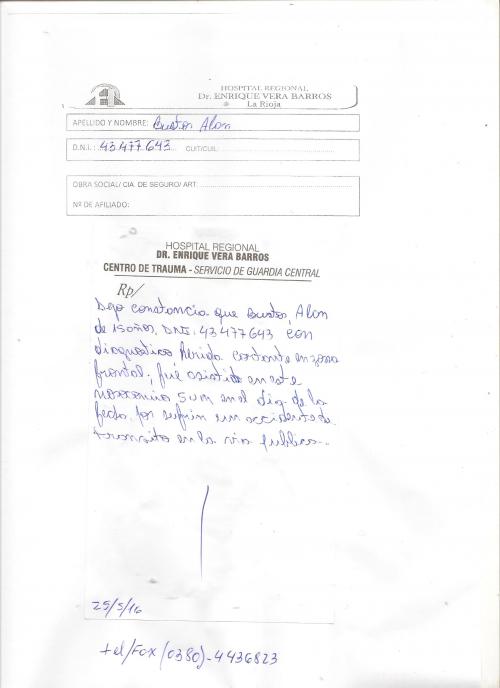 HOSPITAL REGIONAL
Dr. ENRIQUE VERA BARROS
La Rioja
APELLIDO Y NOMBRE: Bustos Alan
D.N.I.: 43 477 643 CUIT/CUIL:
OBRA SOCIAL/ CIA. DE SEGURO/ ART:
Nº DE AFILIADO:
HOSPITAL REGIONAL
DR. ENRIQUE VERA BARROS
CENTRO DE TRAUMA - SERVICIO DE GUARDIA CENTRAL
Rp/
Dejo constancia que Bustos, Alan
de 15 años, DNI: 43 477 643 con
diagnostico herida cortante en zona
frontal, fué asistido en este
nosocomio en el dia de la
fecha por sufrir un accidente de
transito en la via publica.
25/5/16
tel/Fax (0380)-4436823